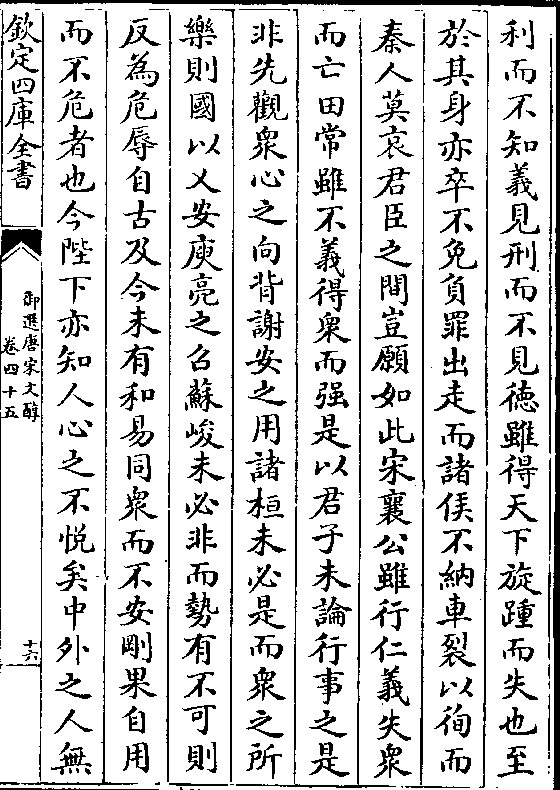 利而不知義見刑而不見徳雖得天下旋踵而失也至
於其身亦卒不免負罪出走而諸侯不納車裂以徇而
秦人莫哀君臣之間豈願如此宋襄公雖行仁義失衆
而亡田常雖不義得衆而强是以君子未論行事之是
非先觀衆心之向背謝安之用諸桓未必是而衆之所
樂則國以乂安庾亮之召蘇峻未必非而勢有不可則
反為危辱自古及今未有和易同衆而不安剛果自用
而不危者也今陛下亦知人心之不悦矣中外之人無
欽定四庫全書
御選唐宋文醇
卷四十五
十六